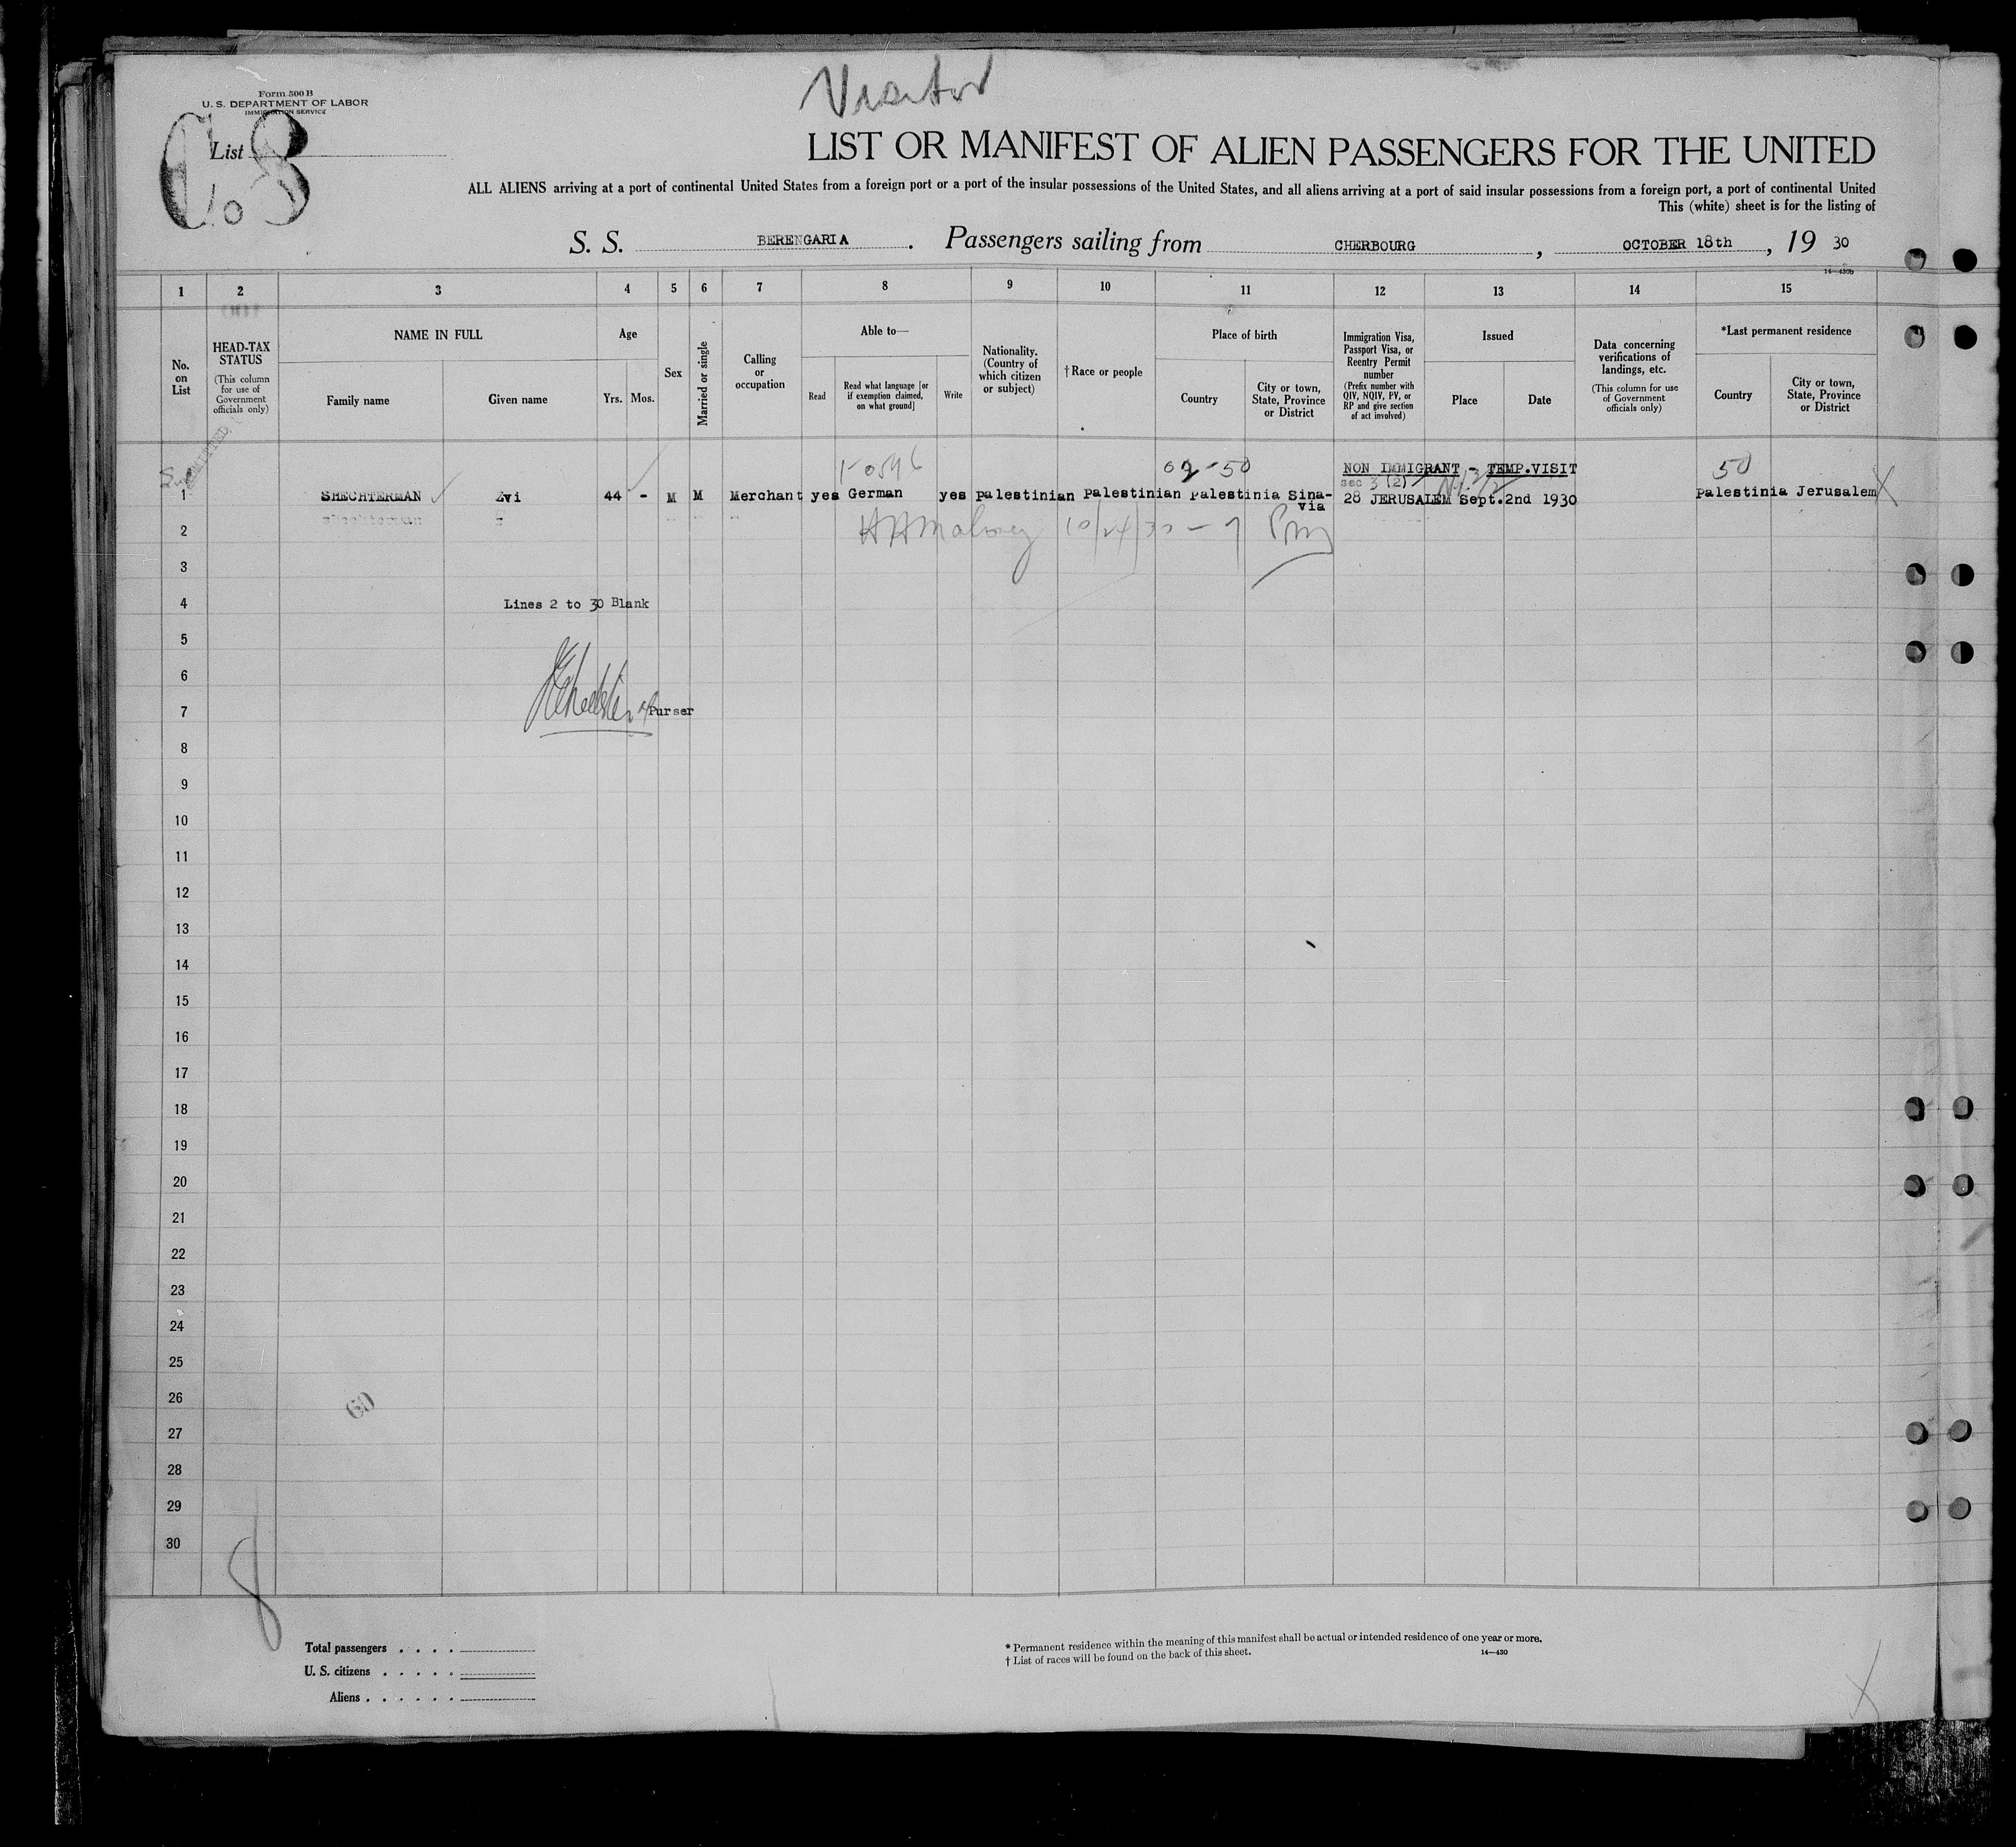 Visitor
Form 500 B
U. S. DEPARTMENT OF LABOR
IMMIGRATION SERVICE
List
LIST OR MANIFEST OF ALIEN PASSENGERS FOR THE UNITED
ALL ALIENS arriving at a port of continental United States from a foreign port or a port of the insular possessions of the United States, and all aliens arriving at a port of said insular possessions from a foreign port, a port of continental United
This (white) sheet is for the listing of
S. S. BERENGARIA. Passengers sailing from CHERBOURG, OCTOBER 18th, 19 30
14—430b
1 2 3 4 5 6 7 8 9 10 11 12 13 14 15
No. on List
HEAD-TAX STATUS
(This column for use of Government officials only)
NAME IN FULL
Family name
Given name
Age
Yrs. Mos.
Sex
Married or single
Calling or occupation
Able to—
Read
Read what language [or if exemption claimed, on what ground]
Write
Nationality. (Country of which citizen or subject)
† Race or people
Place of birth
Country
City or town, State, Province or District
Immigration Visa, Passport Visa, or Reentry Permit number
(Prefix number with QIV, NQIV, PV, or RP and give section of act involved)
Issued
Place
Date
Data concerning verifications of landings, etc.
(This column for use of Government officials only)
*Last permanent residence
Country
City or town, State, Province or District
ADMITTED
02-50
NON IMMIGRANT - TEMP.VISIT
50
sec 3 (2)
1 SHECHTERMAN Zvi 44 - M M Merchant yes German yes Palestinian Palestinian Palestinia Sina-
via
28 JERUSALEM Sept.2nd 1930
Palestinia Jerusalem
2
3
4 Lines 2 to 30 Blank
5
6
7 Purser
8
9
10
11
12
13
14
15
16
17
18
19
20
21
22
23
24
25
26
60
27
28
29
30
Total passengers . . . .
U. S. citizens . . . . .
Aliens . . . . . .
* Permanent residence within the meaning of this manifest shall be actual or intended residence of one year or more.
† List of races will be found on the back of this sheet.
14—430